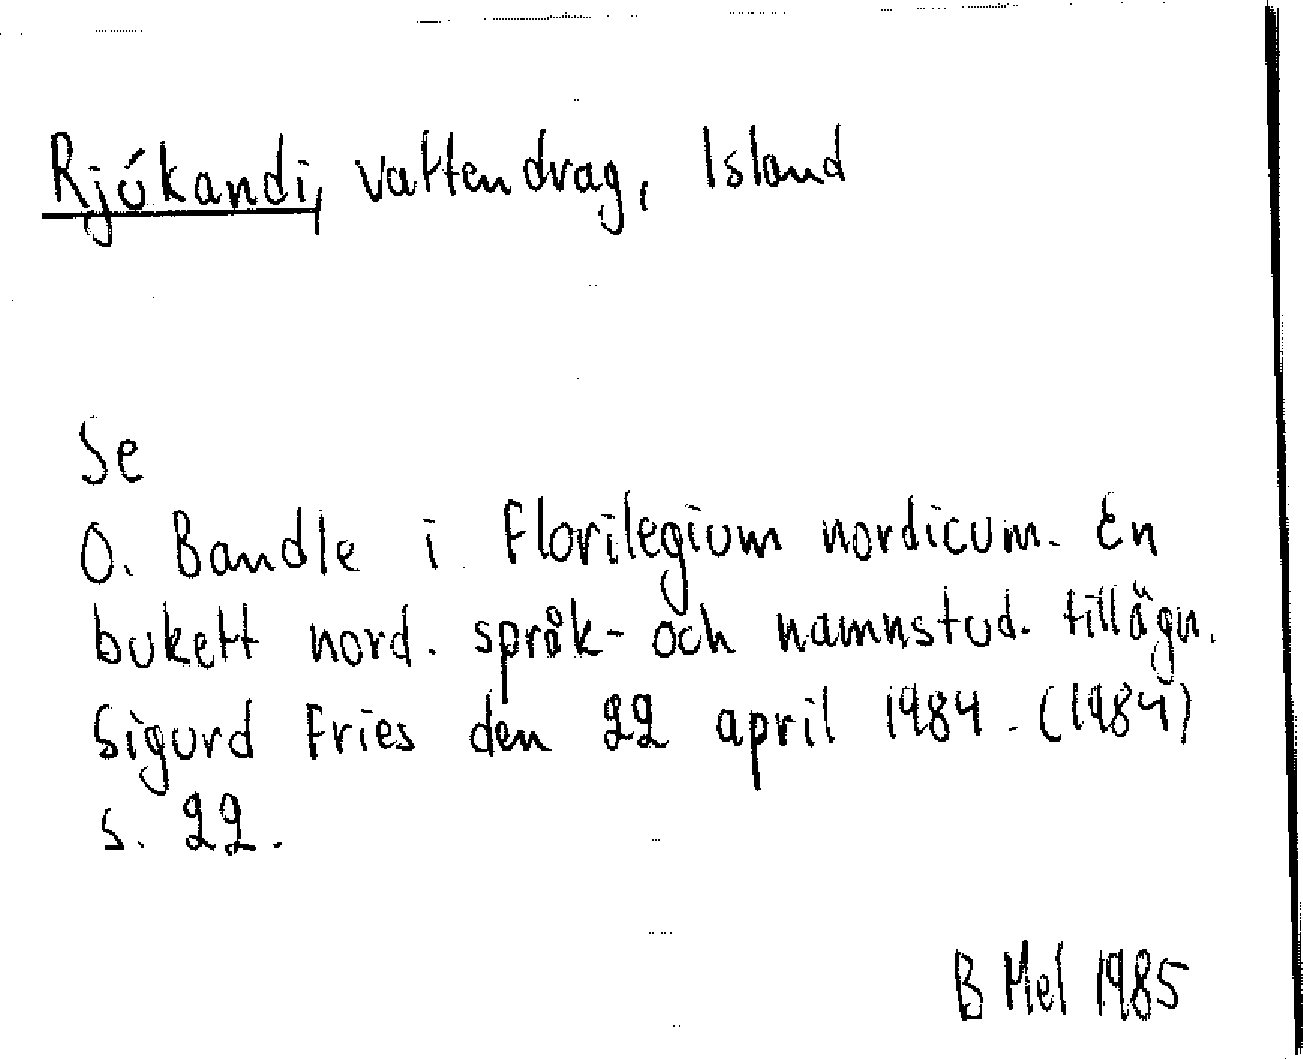 Rjúkandi, vattendrag, Island
Se
O. Bandle i Florilegium nordicum. En
bukett nord. språk- och namnstud. tillägn.
Sigurd Fries den 22 april 1984. (1984)
s. 22.
B Mel 1985